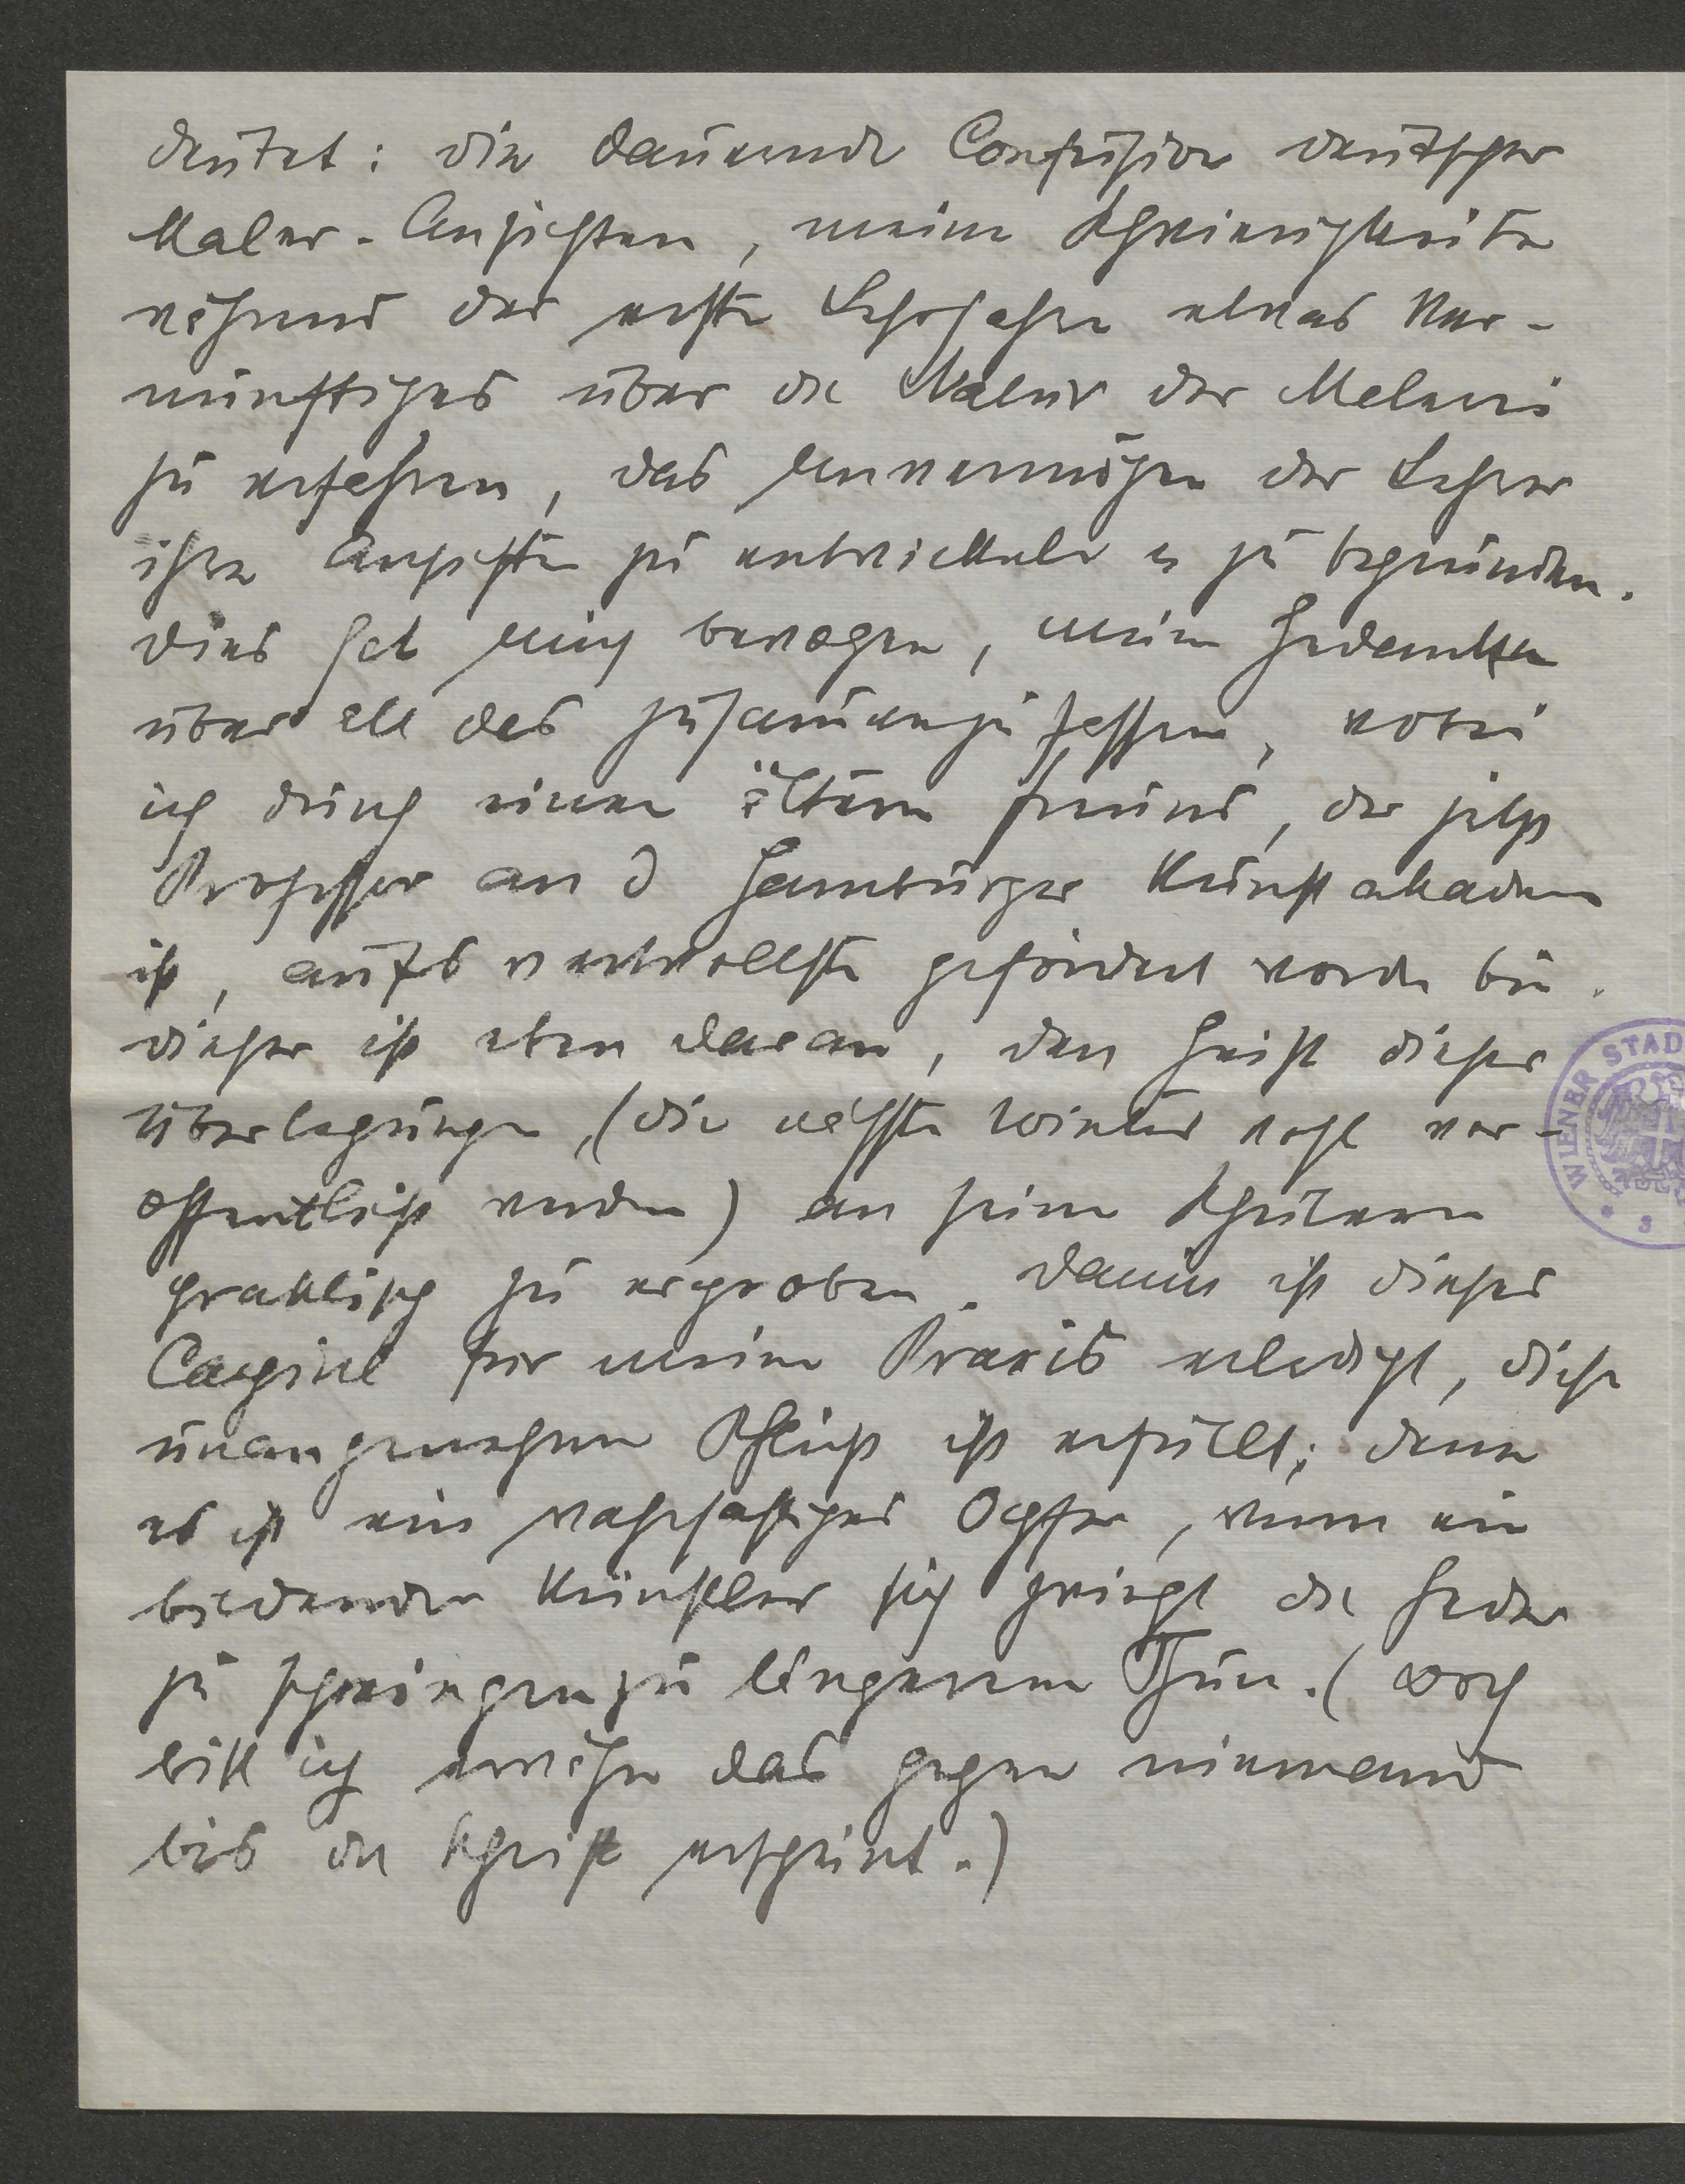 deutet: die dauernde Confusion deutscher
Maler-Ansichten, meine Schwierigkeiten
während der ersten Lehrjahre etwas Ver-
nünftiges über die Natur der Malerei
zu erfahren, das Unvermögen der Lehrer
ihre Ansichten zu entwickeln u zu begründen.
dies hat mich bewogen, meine Gedanken
über all das zusammenzufassen, wobei
ich durch einen ältern Freund, der jetzt
Professor an d Hamburger Kunstakademie
ist, aufs wertvollste gefördert worden bin.
dieser ist eben daran, den Geist dieser
Überlegungen, (die nächsten Winter wohl ver-
öffentlicht werden) an seinen Schülern
praktisch zu erproben. damit ist dieses
Capitel für meine Praxis erledigt, diese
unangenehme Pflicht ist erfüllt; denn
es ist ein wahrhaftiges Opfer, wenn ein
bildender Künstler sich zwingt die Feder
zu schwingen zu längerem Thun. (doch
bitt ich erwähn das gegen niemand
bis die Schrift erscheint.)
WIENER STAD